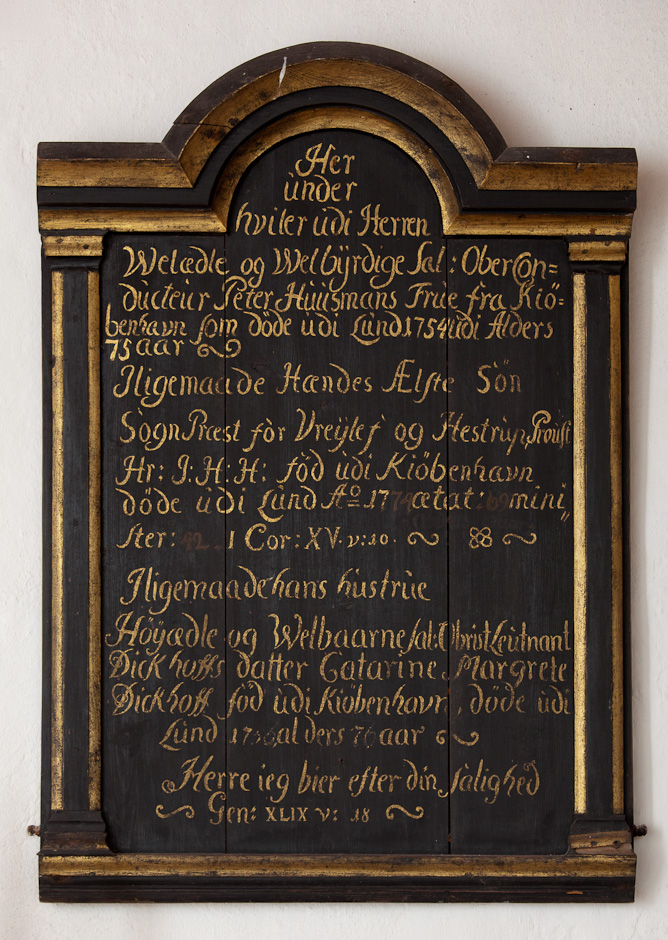 Her
ùnder
hviler ùdi Herren
Welædle og Welbÿrdige Sal: OberCon=
dùcteùr Peter Hùùsmans Frue fra Kiö=
benhavn som döde ùdi Lùnd 1754 ùdi Alders
75 aar
Iligemaade Hændes Ælste Sön
Sogn Præst for Vreÿlef og Hestrùp, Proùst
Hr: I: H: H: föd ùdi Kiöbenhavn
döde ùdi Lùnd Aᵒ 1774 ætat: 69 mini„
ster: 42. 1 Cor: XV. v: 10.
Iligemaade hans hùstrùe
Höÿædle og Welbaarne sal: Obrist Leùtnant
Dickhoffs datter Catarine Margrete
Dickhoff föd ùdi Kiöbenhavn, döde ùdi
Lùnd alders 76 aar
Herre ieg bier efter din Salighed
Gen: XLIX v: 18